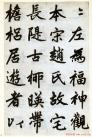 之左為福神觀
本宋趙氏故宅
長隄古柳暎帶
檐梠居遊者以